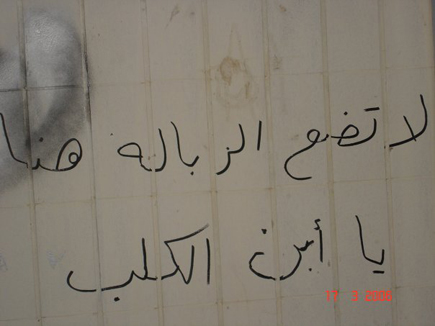 لا تضع الزباله هنا
يا أبن الكلب
17 3 2006